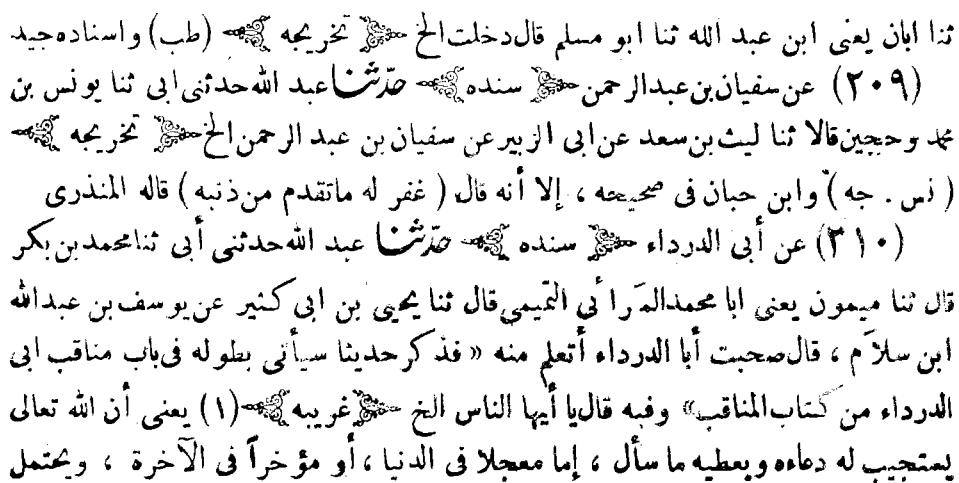 ثنا ابان يعنى ابن عبد الله ثنا ابو مسلم قال دخلت الخ ﴿ تخريجه ﴾ (طب) واسناده جيد
(٢٠٩) عن سفيان بن عبد الرحمن ﴿ سنده ﴾ حدّثنا عبد الله حدثنى ابى ثنا يونس بن
محمد وحجين قالا ثنا ليث بن سعد عن ابى الزبير عن سفيان بن عبد الرحمن الخ ﴿ تخريجه ﴾
( نس . جه ) وابن حبان فى صحيحه ، إلا أنه قال ( غفر له ماتقدم من ذنبه ) قاله المنذرى
(٢١٠) عن أبى الدرداء ﴿ سنده ﴾ حدّثنا عبد الله حدثنى أبى ثنا محمد بن بكر
قال ثنا ميمون يعنى ابا محمد المَرائى التميمى قال ثنا يحيى بن ابى كثير عن يوسف بن عبد الله
ابن سلاَم ، قال صحبت أبا الدرداء أتعلم منه « فذكر حديثا سيأتى بطوله فى باب مناقب ابى
الدرداء من كتاب المناقب» وفيه قال يا أيها الناس الخ ﴿ غريبه ﴾ (١) يعنى أن الله تعالى
يستجيب له دعاءه ويعطيه ما سأل ، إما معجلا فى الدنيا ، أو مؤخراً فى الآخرة ، ويحتمل